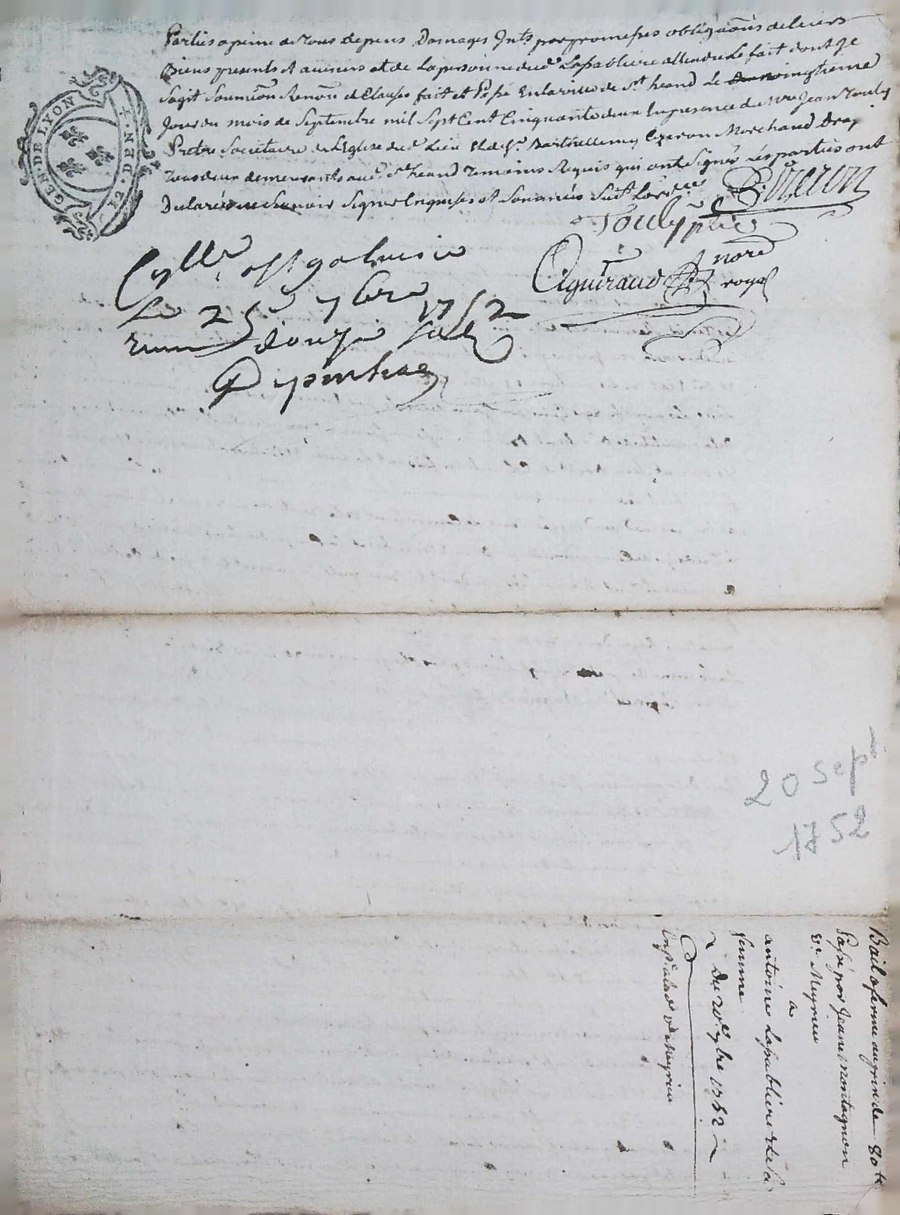 Parties a peine de tous depens Domages Ints par promesses obligaõns de leurs
Biens presents et avenirs et de la personne dud. Lapabliere attendu le fait dont Se
Sagit Soumiõn Renoõn et Clauses fait et Passé En la ville de St heand Le vingtieme
Jour du mois de Septembre mil Sept Cent Cinquante deux En presence de mre Jean Touly
Pretre Societaire de l'Eglise dud. Lieu Et de Sr. Barthellemy Ezeron Marchand Drap
tous deux demeurants aud. St heand temoins Requis qui ont Signé les parties ont
Declaré ne Scavoir Signer Enquises et
B. Ezeron
Touly ptre
Aguiraud nore
royal
Collé
Le 25e 7bre 1752
douze Sols
GEN. DE LYON
12. DEN.
20 Sept
1752
Bail a ferme au prix de 80 lt
Passé par Jeane montagnon
ve Meyrieu
a
antoine Lapabliere et Sa
femme
Du 20e 7bre 1752